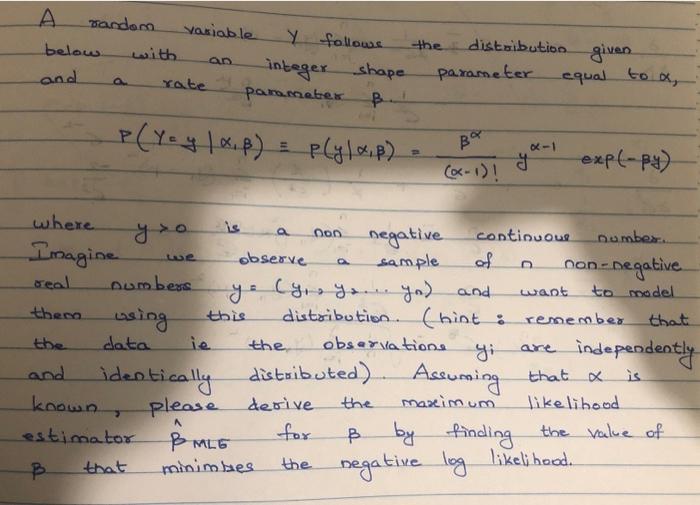 A random variable Y follows the distribution given
below with an integer shape parameter equal to α,
and a rate parameter β.
P(Y=y|α,β) = P(y|α,β) = β^α / (α-1)! y^(α-1) exp(-βy)
where y>0 is a non negative continuous number.
Imagine we observe a sample of n non-negative
real numbers y = (y₁, y₂ ... yₙ) and want to model
them using this distribution. (hint : remember that
the data ie the observations yᵢ are independently
and identically distributed). Assuming that α is
known, please derive the maximum likelihood
estimator β̂ MLE for β by finding the value of
β that minimizes the negative log likelihood.